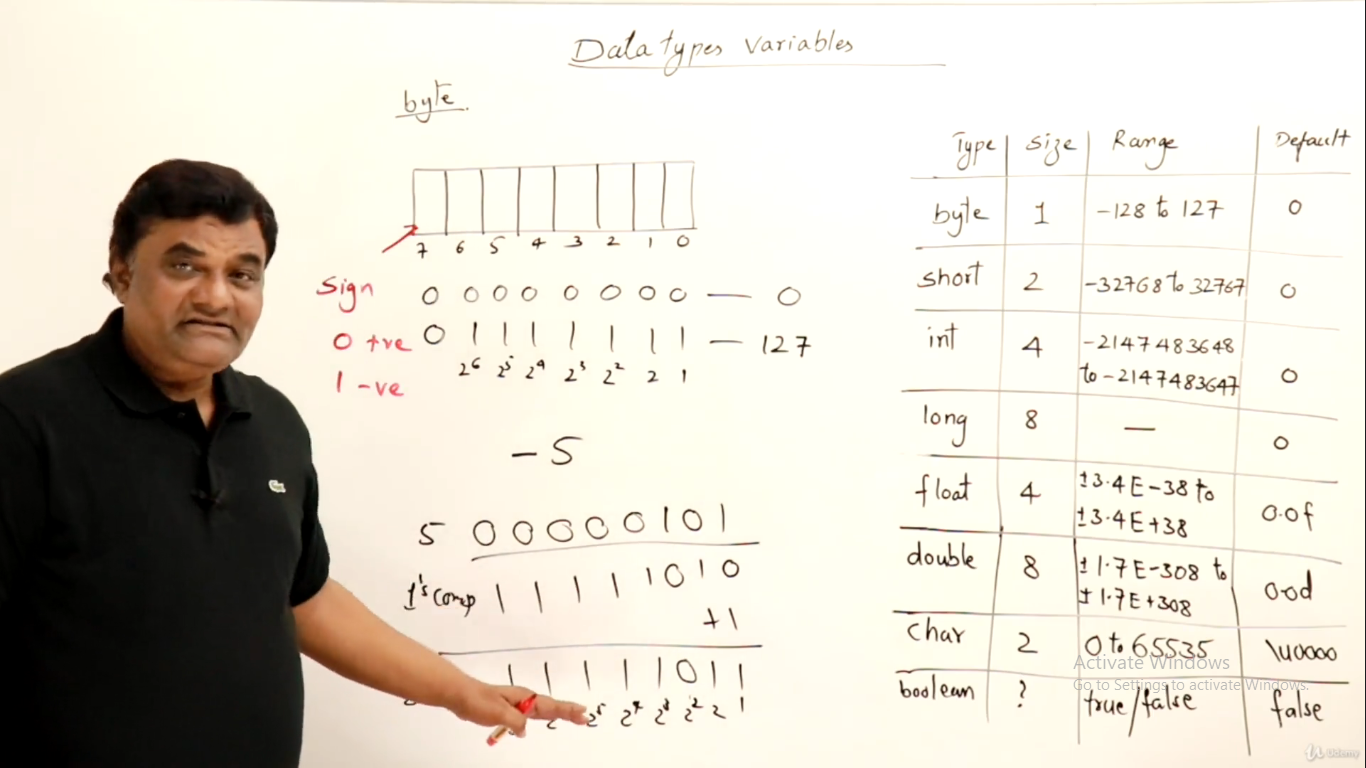 Data types Variables
byte
7 6 5 4 3 2 1 0
Sign 0 0 0 0 0 0 0 0 — 0
0 +ve 0 1 1 1 1 1 1 1 — 127
2⁶ 2⁵ 2⁴ 2³ 2² 2 1
1 -ve
-5
5 0 0 0 0 0 1 0 1
1's comp 1 1 1 1 1 0 1 0
+1
1 1 1 1 1 0 1 1
2⁵ 2⁴ 2³ 2² 2 1
Type Size Range Default
byte 1 -128 to 127 0
short 2 -32768 to 32767 0
int 4 -2147483648
to -2147483647 0
long 8 — 0
float 4 ±3.4E-38 to
±3.4E+38 0.0f
double 8 ±1.7E-308 to
±1.7E+308 0.0d
char 2 0 to 65535 \u0000
boolean ? true/false false
Activate Windows
Go to Settings to activate Windows.
Udemy